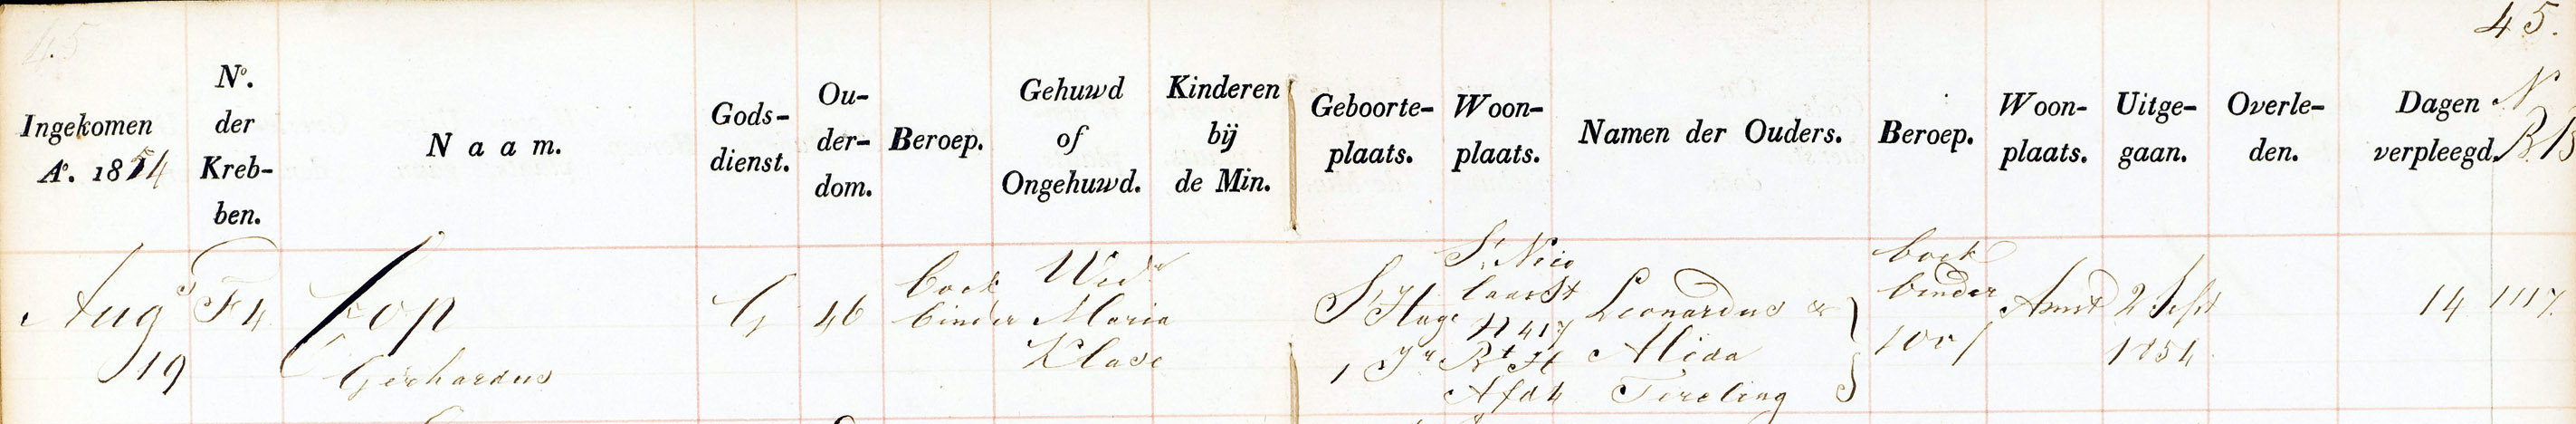 45.
Ingekomen
Aº. 1854
Nº.
der
Kreb-
ben.
Naam.
Gods-
dienst.
Ou-
der-
dom.
Beroep.
Gehuwd
of
Ongehuwd.
Kinderen
bij
de Min.
Geboorte-
plaats.
Woon-
plaats.
Namen der Ouders.
Beroep.
Woon-
plaats.
Uitge-
gaan.
Overle-
den.
Dagen
verpleegd.
N
B. B
Augs
19
F 4
Fop
Gerhardus
G
46
boek
binder
Wedr
Maria
Klave
S Hage
1 Jr
St Nico
laasst
N 417
Bt H
Afd 4
Leonardus &
Alida
Tireling
boek
binder
Amst
2 Sept
1854
14
1117.